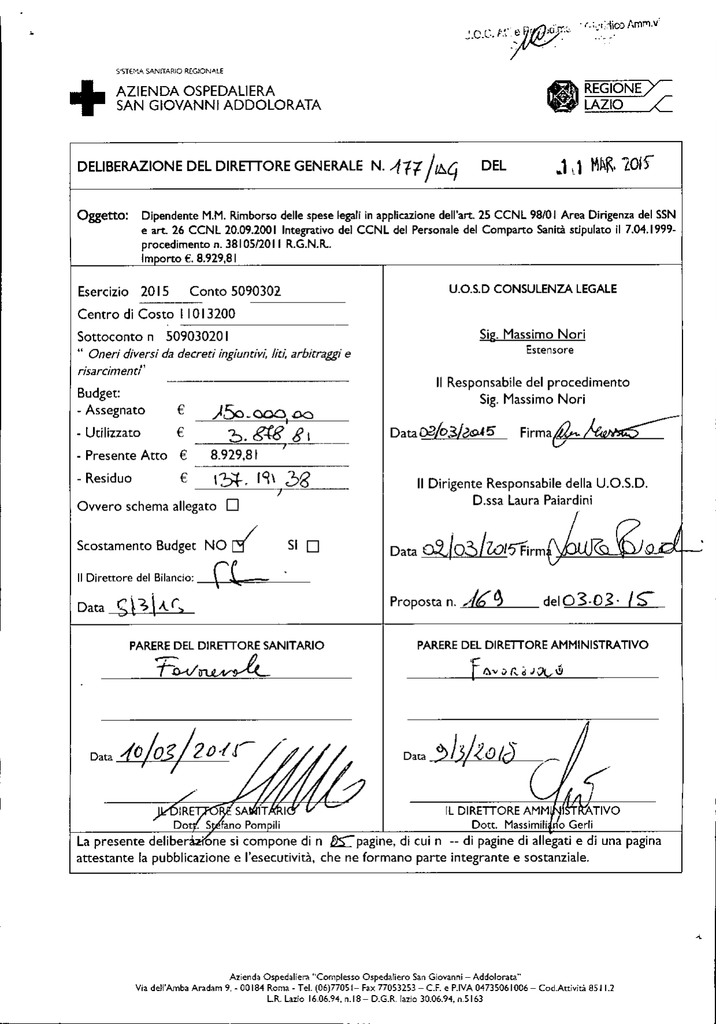 SISTEMA SANITARIO REGIONALE
AZIENDA OSPEDALIERA
SAN GIOVANNI ADDOLORATA
REGIONE
LAZIO
DELIBERAZIONE DEL DIRETTORE GENERALE N. 177/DG DEL 11 MAR. 2015
Oggetto: Dipendente M.M. Rimborso delle spese legali in applicazione dell'art. 25 CCNL 98/01 Area Dirigenza del SSN
e art. 26 CCNL 20.09.2001 Integrativo del CCNL del Personale del Comparto Sanità stipulato il 7.04.1999-
procedimento n. 38105/2011 R.G.N.R..
Importo €. 8.929,81
Esercizio 2015 Conto 5090302
Centro di Costo 11013200
Sottoconto n 509030201
" Oneri diversi da decreti ingiuntivi, liti, arbitraggi e
risarcimenti"
Budget:
- Assegnato € 150.000,00
- Utilizzato € 3.878,81
- Presente Atto € 8.929,81
- Residuo € 137.191,38
Ovvero schema allegato ☐
Scostamento Budget NO ☑ SI ☐
Il Direttore del Bilancio:
Data 5/3/15
U.O.S.D CONSULENZA LEGALE
Sig. Massimo Nori
Estensore
Il Responsabile del procedimento
Sig. Massimo Nori
Data 02/03/2015 Firma
Il Dirigente Responsabile della U.O.S.D.
D.ssa Laura Paiardini
Data 02/03/2015 Firma
Proposta n. 169 del 03.03.15
PARERE DEL DIRETTORE SANITARIO
Favorevole
Data 10/03/2015
IL DIRETTORE SANITARIO
Dott. Stefano Pompili
PARERE DEL DIRETTORE AMMINISTRATIVO
Data 9/3/2015
IL DIRETTORE AMMINISTRATIVO
Dott. Massimiliano Gerli
La presente deliberazione si compone di n 05 pagine, di cui n -- di pagine di allegati e di una pagina
attestante la pubblicazione e l'esecutività, che ne formano parte integrante e sostanziale.
Azienda Ospedaliera "Complesso Ospedaliero San Giovanni – Addolorata"
Via dell'Amba Aradam 9, - 00184 Roma - Tel. (06)77051– Fax 77053253 – C.F. e P.IVA 04735061006 – Cod.Attività 8511.2
L.R. Lazio 16.06.94, n.18 – D.G.R. lazio 30.06.94, n.5163